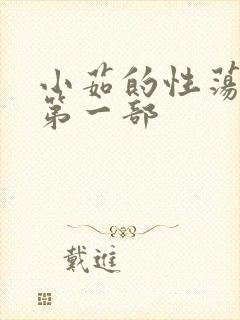 小茹的性荡
第一部
戴進